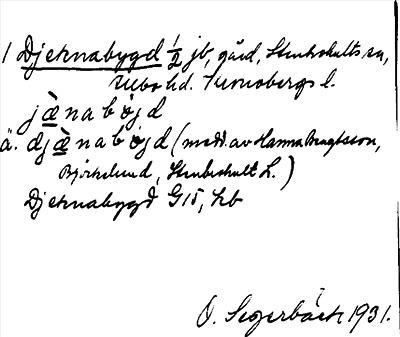 1 Djeknabygd ½ jb, gård, Stenbrohults sn,
Allbo hd. Kronobergs l.
jæ̀nabøjd
ä. djæ̀nabøjd (medd. av Hanna Bengtsson,
Björkelund, Stenbrohult L.)
Djeknabygd G15, hb
O. Segerbäck 1931.